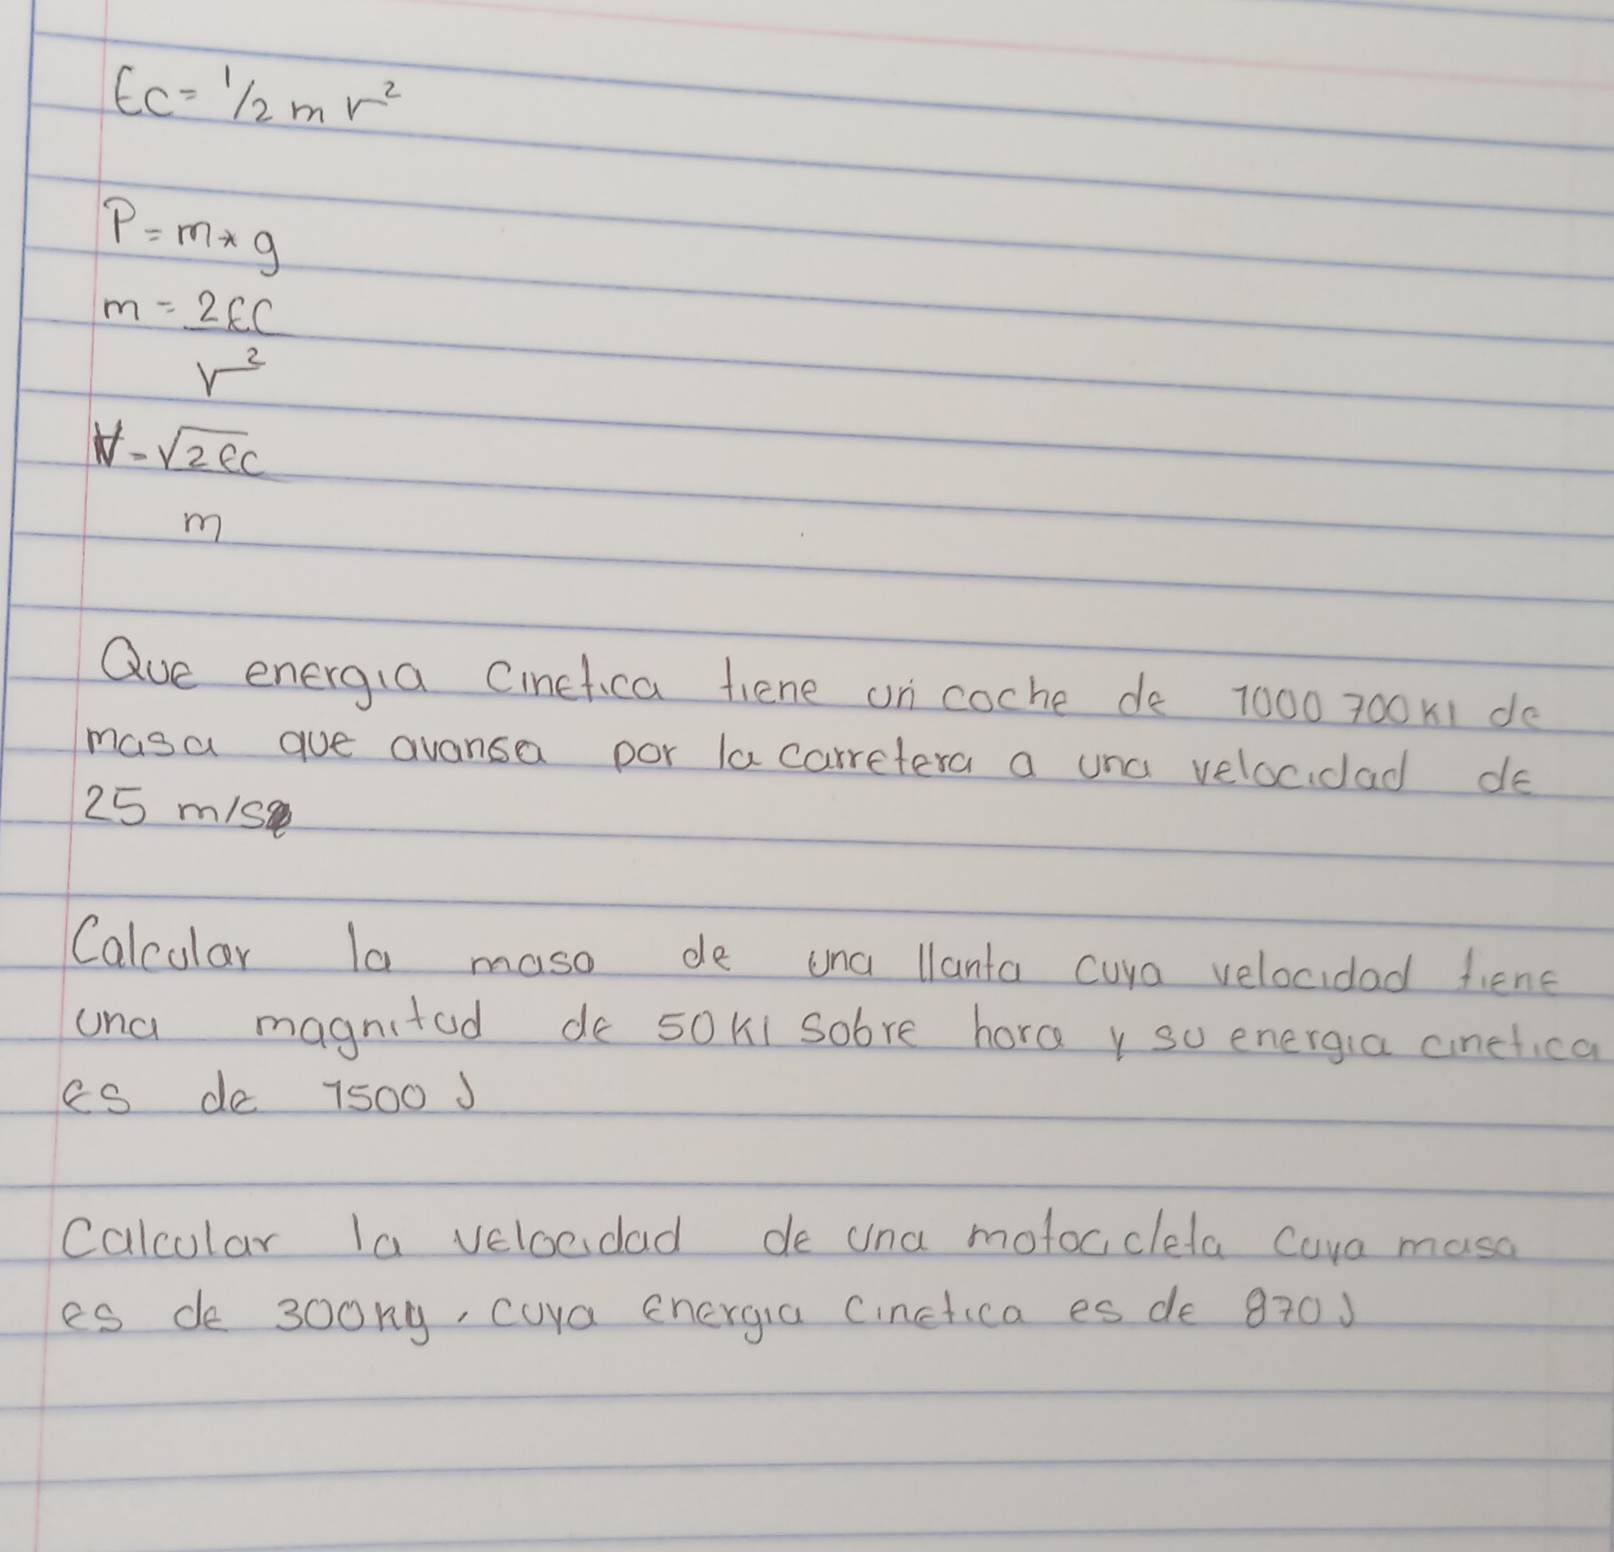 Ec = 1/2 m v²
P = m * g
m = 2Ec
v²
V = √2Ec
m
Que energia cinetica tiene un coche de 1000 700 Kl de
masa que avansa por la carretera a una velocidad de
25 m/s
Calcular la masa de una llanta cuya velocidad tiene
una magnitud de 50 Kl sobre hora y su energia cinetica
es de 1500 J
Calcular la velocidad de una motocicleta cuya masa
es de 300 kg, cuya energia cinetica es de 870 J